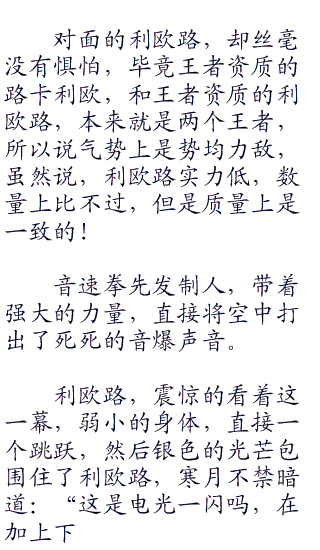 对面的利欧路，却丝毫
没有惧怕，毕竟王者资质的
路卡利欧，和王者资质的利
欧路，本来就是两个王者，
所以说气势上是势均力敌，
虽然说，利欧路实力低，数
量上比不过，但是质量上是
一致的！
音速拳先发制人，带着
强大的力量，直接将空中打
出了死死的音爆声音。
利欧路，震惊的看着这
一幕，弱小的身体，直接一
个跳跃，然后银色的光芒包
围住了利欧路，寒月不禁暗
道：“这是电光一闪吗，在
加上下